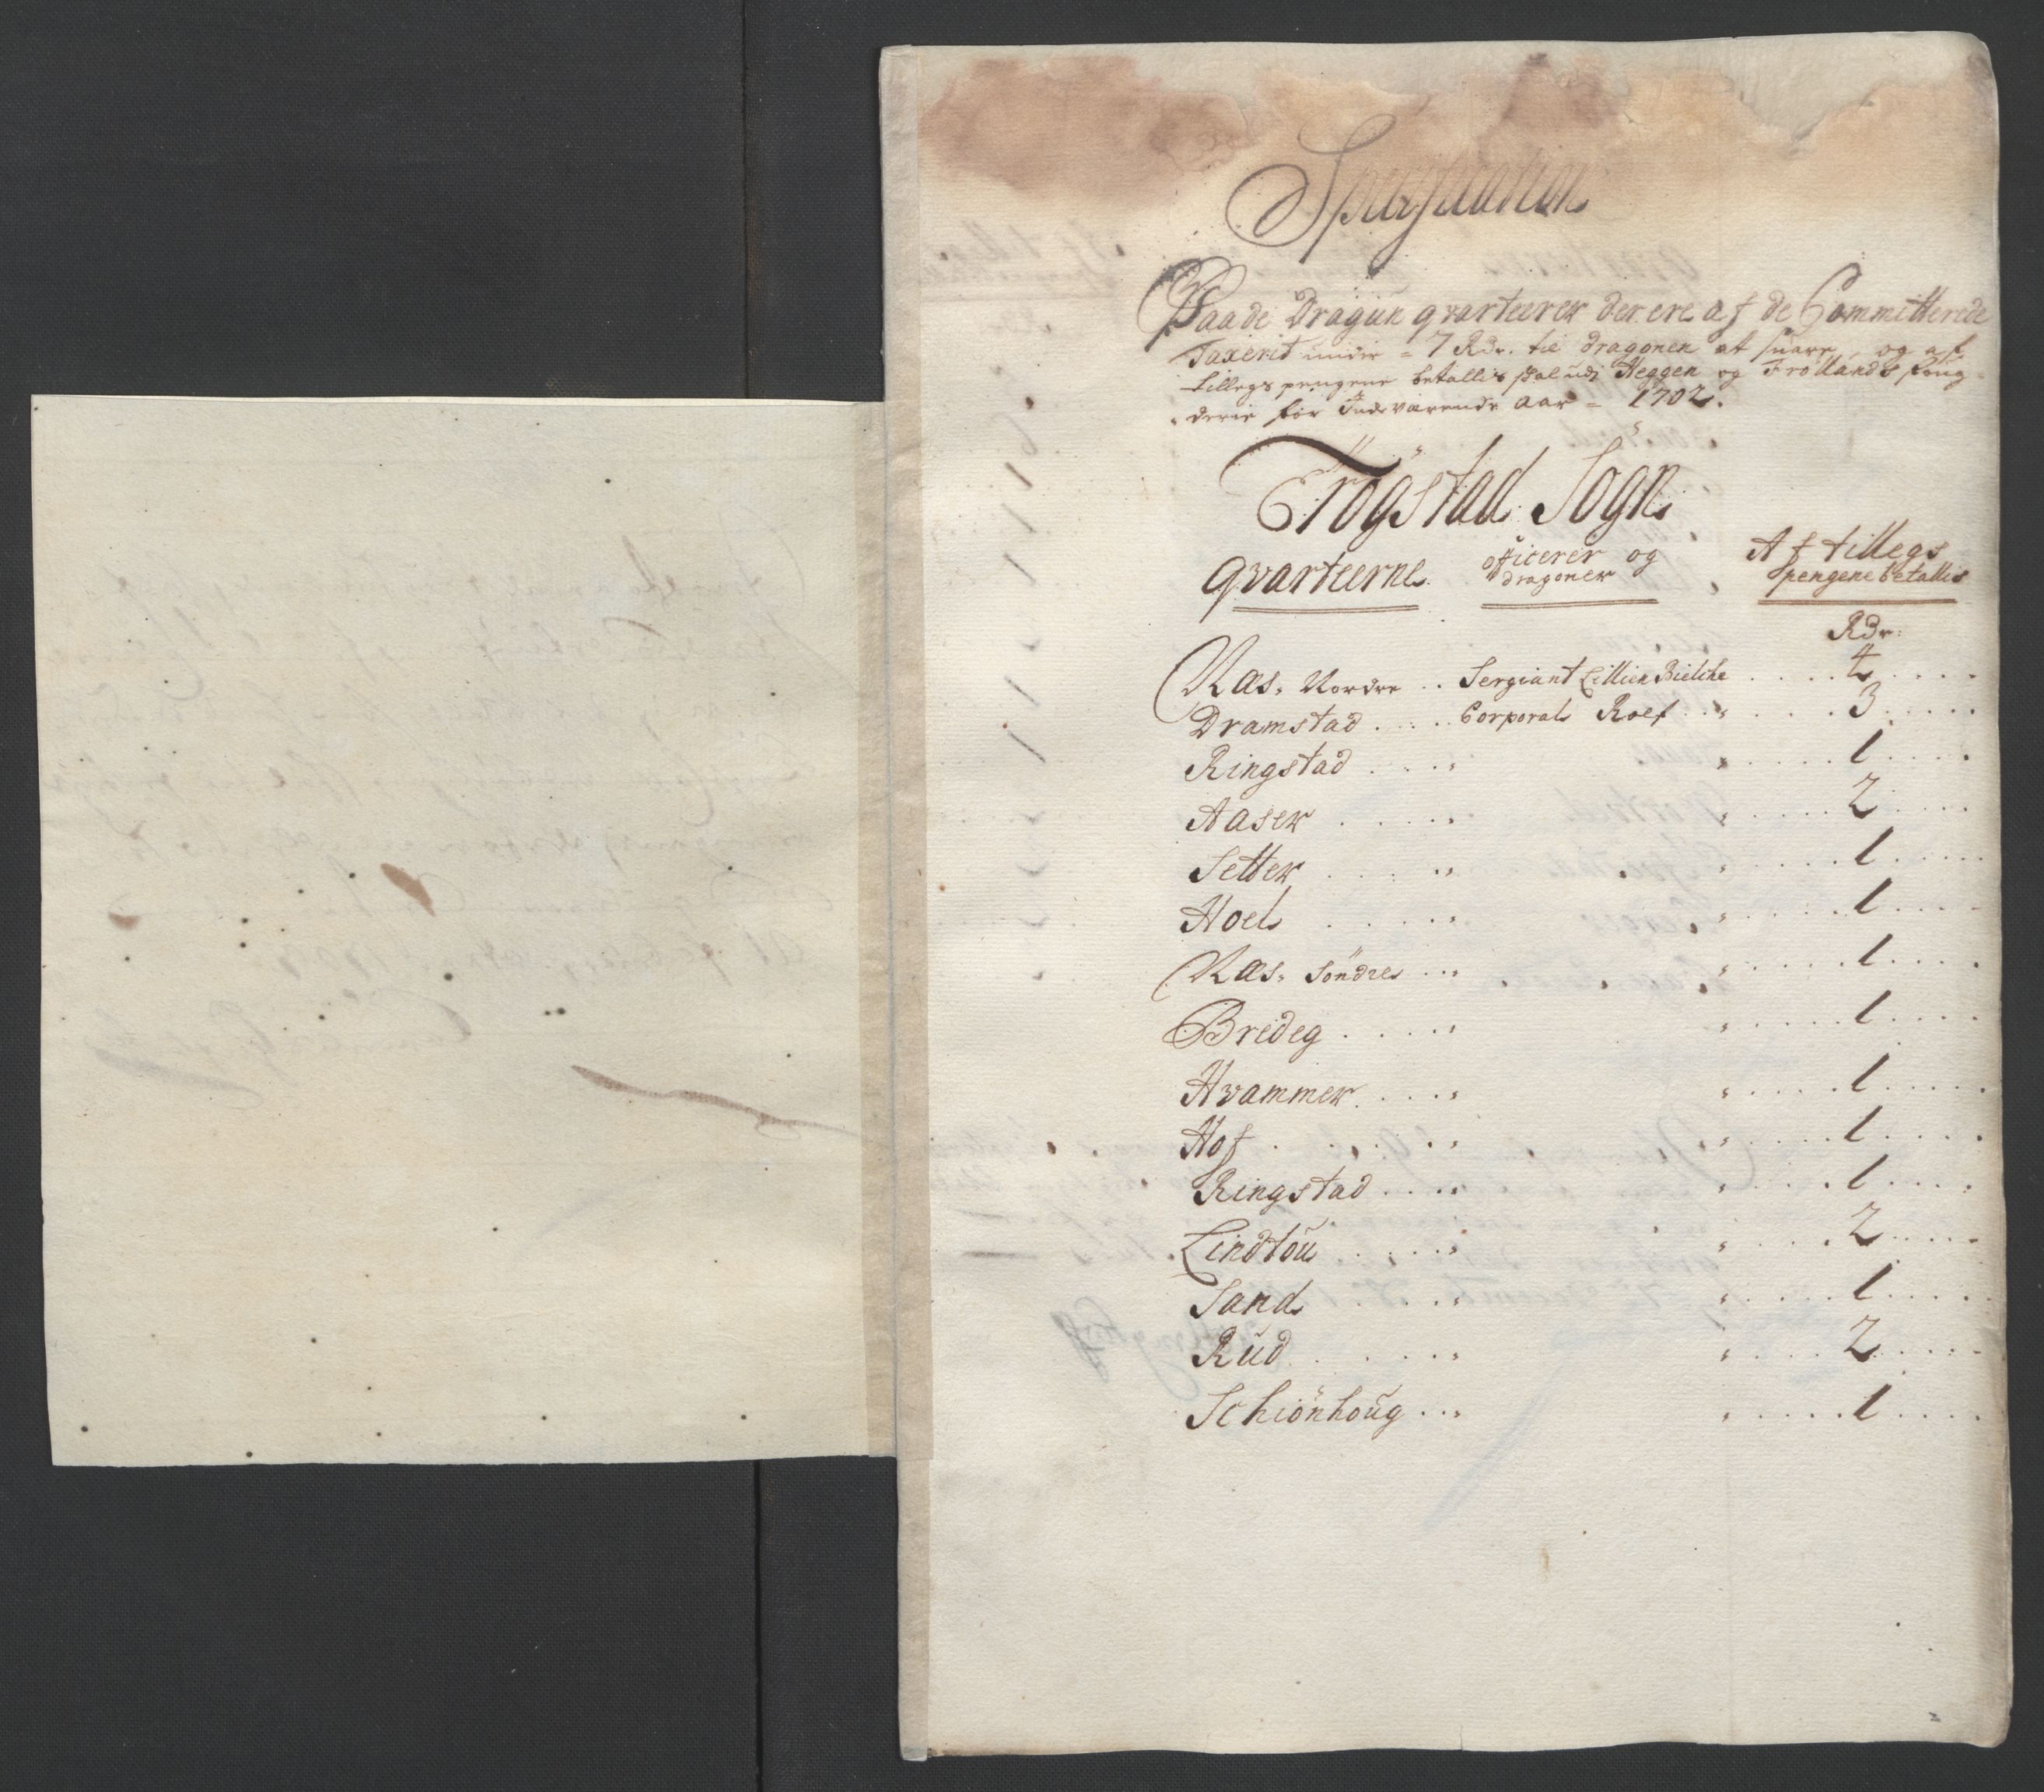 Specification
Paa de Dragun qvarteerer der ere af de Committerede
Taxerit under = 7 Rdr. til dragonen at svare, og af
tillegs pengene betallis skal udj Heggen og Frøllands fong-
derie for Indeværende Aar = 1702.
Trögstad Sogn
qvarteerne officerer og dragoner Af tillegs pengene betallis
Rdr:
Næs. Nordre .. Sergiant Lillien Bielche 4
Dramstad .... Corporal Roef 3
Ringstad .... 1
Aaser .... 2
Setter .... 1
Hoel .... 1
Næs. Söndre .. 1
Bredeg .... 1
Hvammer .... 1
Hof .... 1
Ringstad .... 1
Lindtou .... 2
Sand .... 1
Rud .... 2
Schiönhoug .. 1